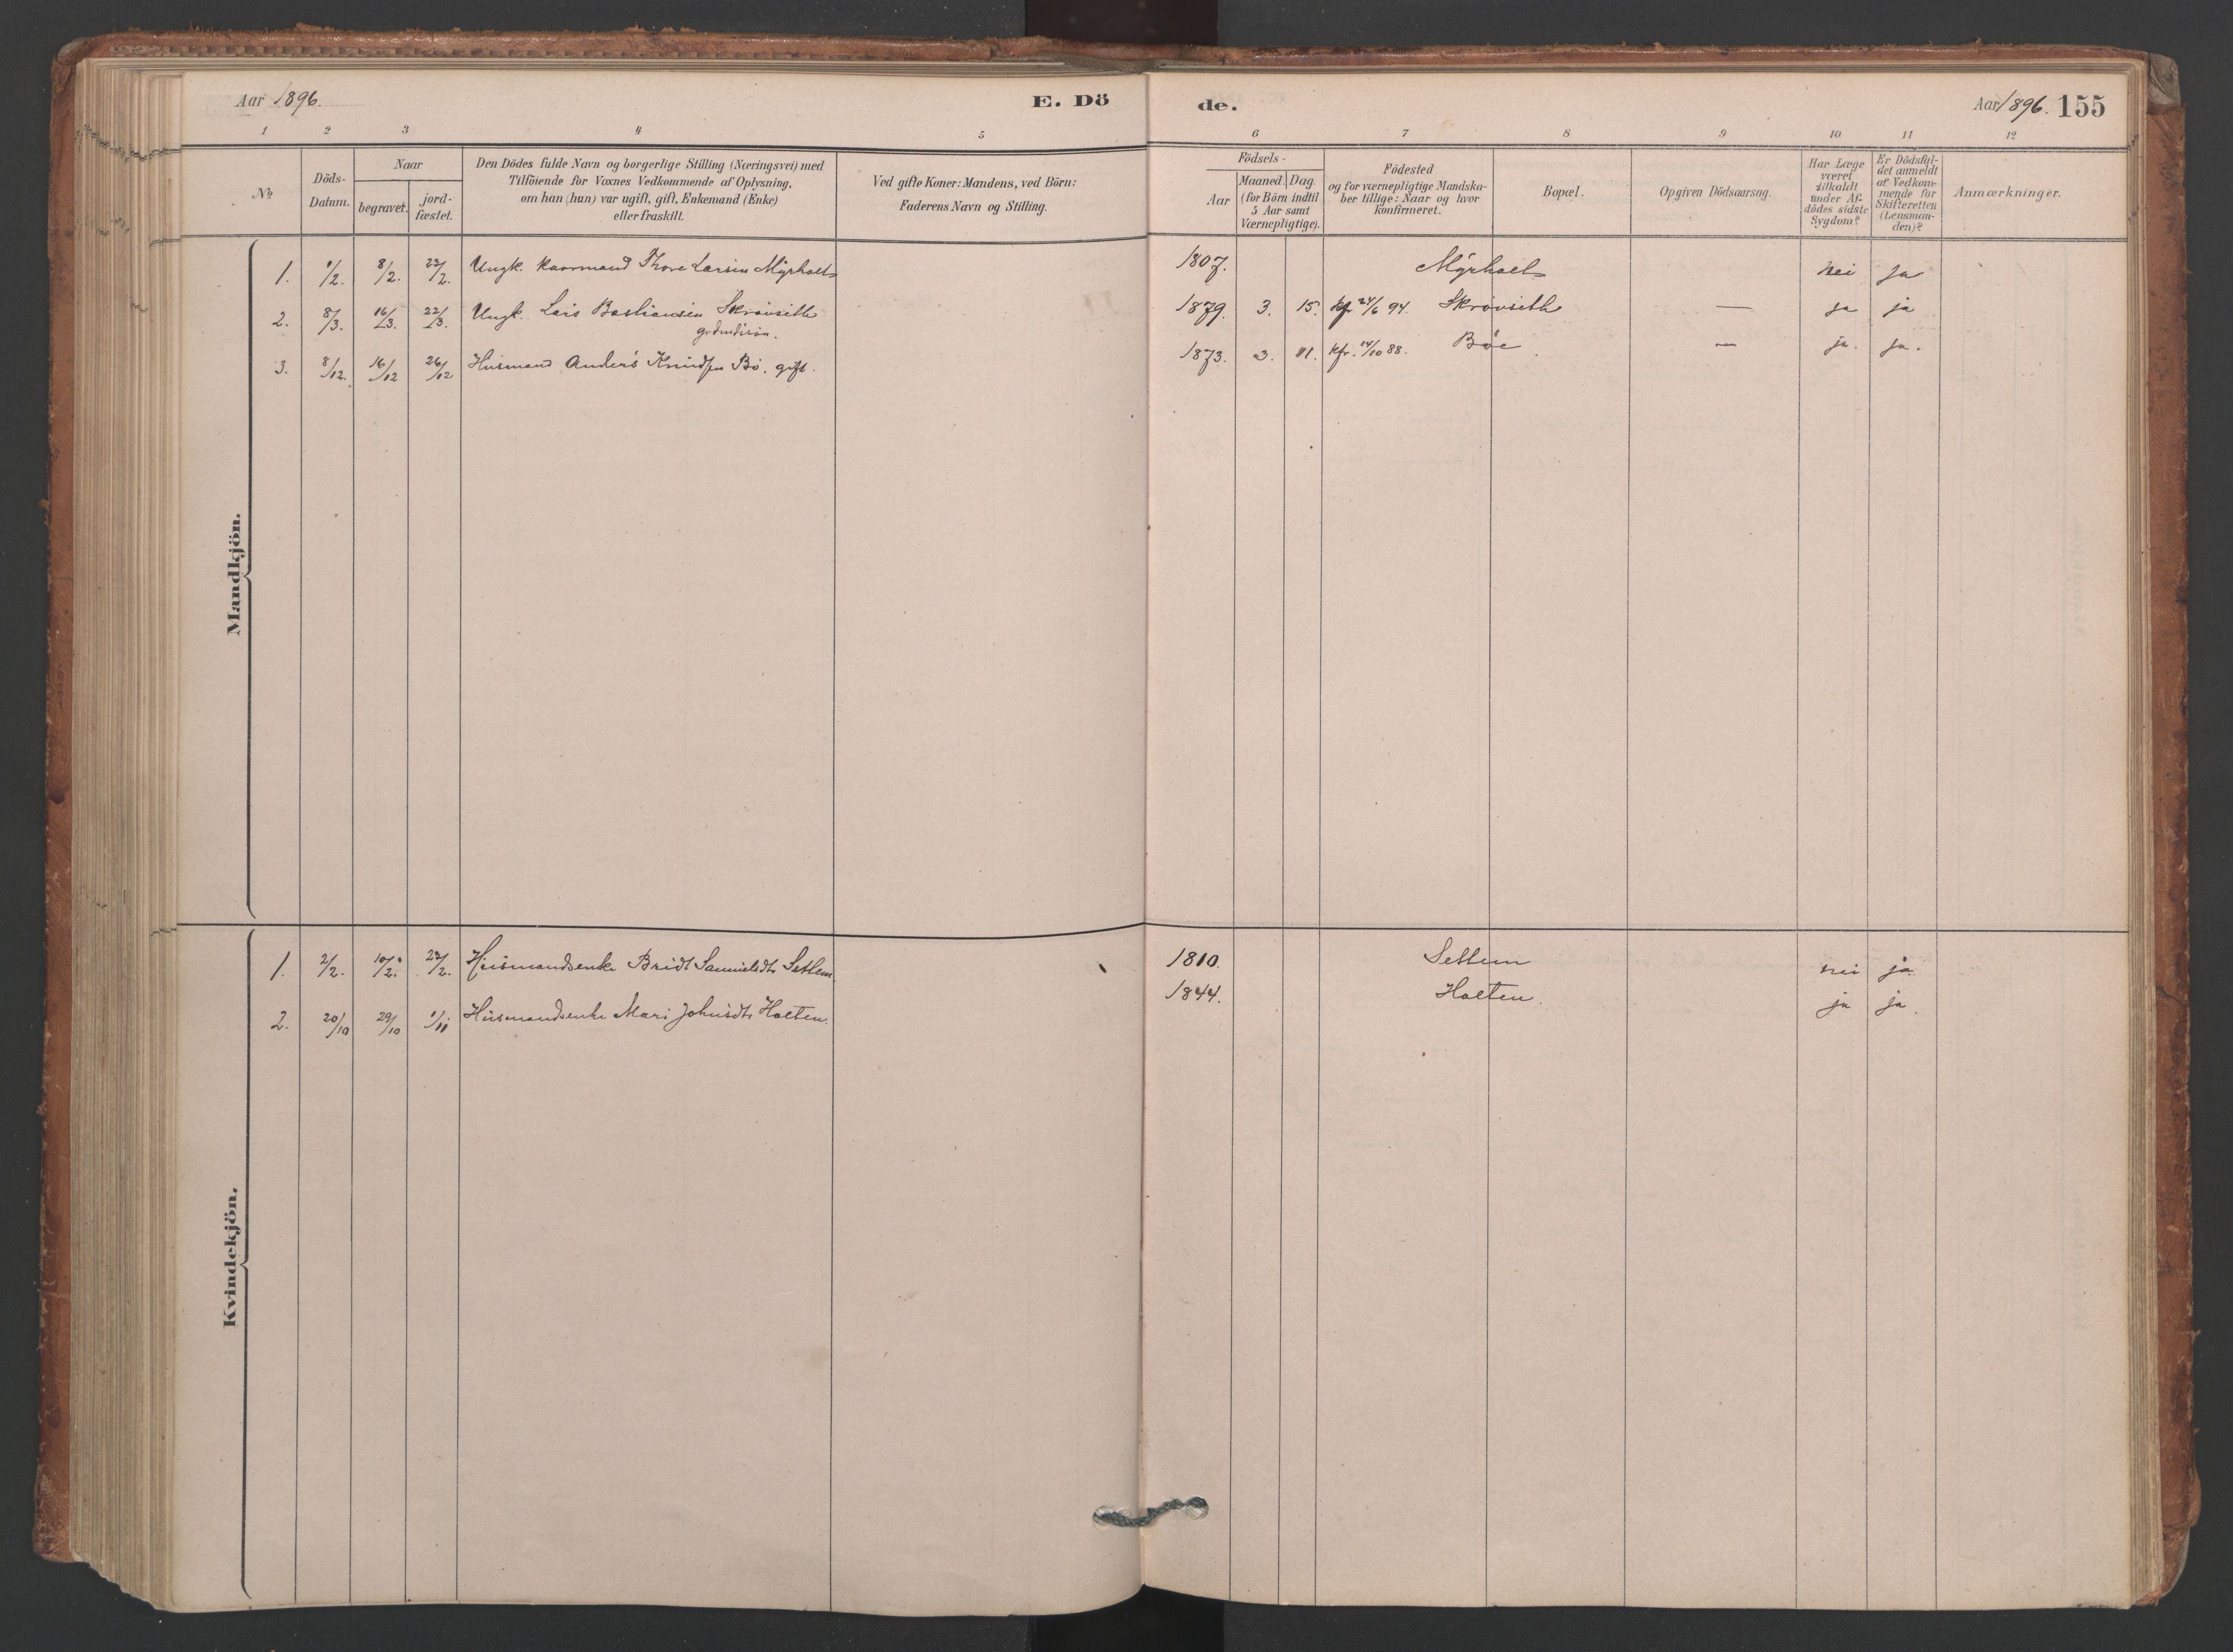 Aar 1896. E. Dö de. Aar 1896. 155
1 2 3 4 5 6 7 8 9 10 11 12
No
Döds-
Datum.
Naar
begravet.
jord-
fæstet.
Den Dödes fulde Navn og borgerlige Stilling (Næringsvei) med
Tilföiende for Voxnes Vedkommende af Oplysning,
om han (hun) var ugift, gift, Enkemand (Enke)
eller fraskilt.
Ved gifte Koner: Mandens, ved Börn:
Faderens Navn og Stilling.
Födsels-
Aar
Maaned. Dag.
(for Börn indtil
5 Aar samt
Værnepligtige).
Födested
og for værnepligtige Mandska-
ber tillige: Naar og hvor
konfirmeret.
Bopæl.
Opgiven Dödsaarsag.
Har Læge
været
tilkaldt
under Af-
dödes sidste
Sygdom?
Er Dödsfal-
det anmeldt
af Vedkom-
mende for
Skifteretten
(Lensman-
den)?
Anmærkninger.
Mandkjön.
1. 1/2. 8/2. 23/2. Ungk. Kaarmand Thore Larsen Myrholt 1807. Myrholt nei ja
2. 8/3. 16/3. 22/3. Ungk. Lars Bastiansen Skrøvseth 1879. 3. 15. kf 24/6 94. Skrøvseth — ja ja
3. 8/12. 16/12 26/12 Husmand Anders Knudsen Bö. gift. 1873. 3. 11. kfr. 14/10 88. Böe — ja. ja.
Kvindekjön.
1. 2/2. 10/2. 23/2. Husmandsenke Brit Samuelsdt. Settem 1810. Settem nei ja
2. 20/10 29/10 1/11 Husmandsenke Mari Johnsdt. Holten. 1844. Holten. ja ja.